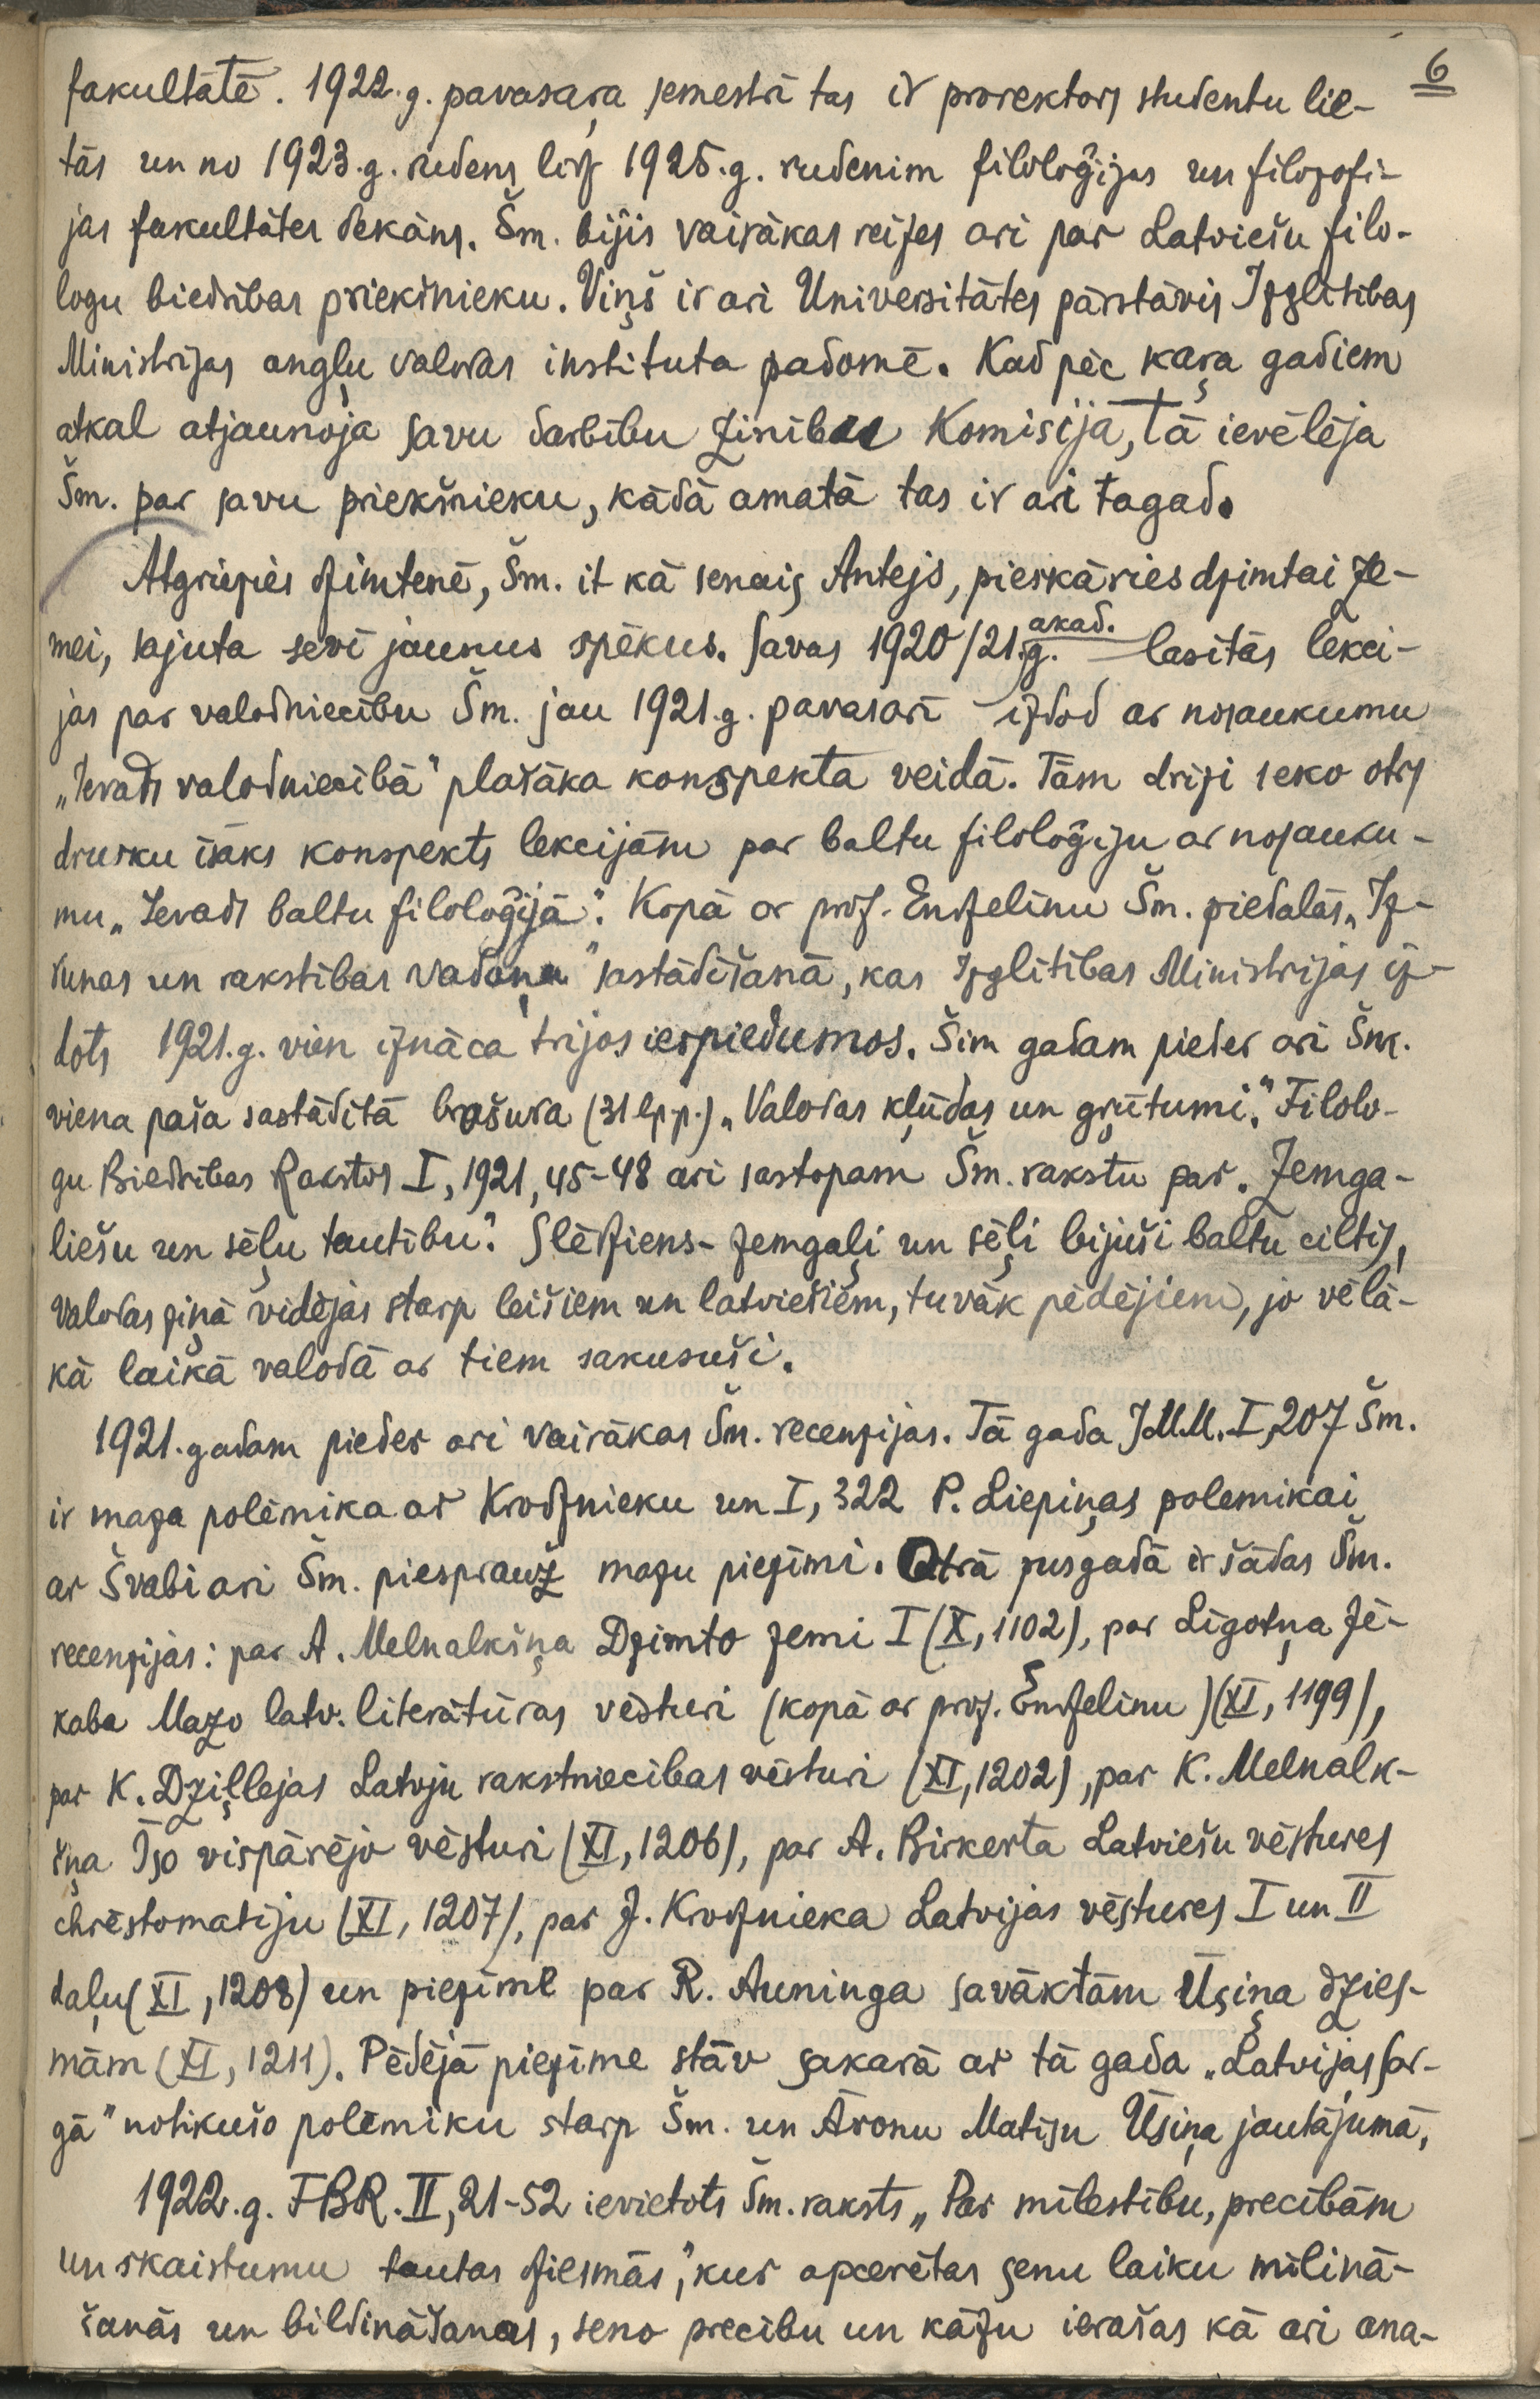 6
fakultātē. 1922.g. pavasaŗa semestrī tas ir prorektors studentu lie-
tās un no 1923.g. rudens līdz 1925.g. rudenim filoloģijas un filozofi-
jas fakultātes dekāns. Šm. bijis vairākas reizes arī par Latviešu filo-
logu biedrības priekšnieku. Viņš ir arī Universitātes pārstāvis Izglītības
Ministrijas angļu valodas institūta padomē. Kad pēc kaŗa gadiem
atkal atjaunoja savu darbību Zinību Komisija, tā ievēlēja
Šm. par savu priekšnieku, kādā amatā tas ir arī tagad.
Atgriezies dzimtenē, Šm. it kā senais Antejs, pieskāries dzimtai ze-
mei, sajuta sevī jaunus spēkus. Savas 1920/21. akad. g. lasītās lekci-
jas par valodniecību Šm. jau 1921.g. pavasarī izdod ar nosaukumu
„Ievads valodniecībā" plašāka konspekta veidā. Tam drīzi seko otrs
drusku īsāks konspekts lekcijām par baltu filoloģiju ar nosauku-
mu „Ievads baltu filoloģijā". Kopā ar prof. Endzelīnu Šm. piedalās „Iz-
runas un rakstības vadoņa" sastādīšanā, kas Izglītības Ministrijas iz-
dots 1921.g. vien iznāca trijos iespiedumos. Šim gadam pieder arī Šm.
viena paša sastādītā brošura (31 lp.p.) „Valodas kļūdas un grūtumi". Filolo-
gu Biedrības Rakstos I, 1921, 45-48 arī sastopam Šm. rakstu par „Zemga-
liešu un sēļu tautību". Slēdziens - zemgaļi un sēļi bijuši baltu ciltis,
valodas ziņā vidējas starp leišiem un latviešiem, tuvāk pēdējiem, jo vēlā-
kā laikā valodā ar tiem sakusuši.
1921. gadam pieder arī vairākas Šm. recenzijas. Tā gada IMM. I, 207 Šm.
ir maza polēmika ar Krodznieku un I, 322 P. Liepiņas polemikai
ar Švābi arī Šm. piesprauž mazu piezīmi. Otrā pusgadā ir šādas Šm.
recenzijas: par A. Melnalkšņa Dzimto zemi I (X, 1102), par Līgotņa Jē-
kaba Mazo latv. literātūras vēsturi (kopā ar prof. Endzelīnu) (XI, 1199),
par K. Dziļlejas Latvju rakstniecības vēsturi (XI, 1202), par K. Melnalk-
šņa Īso vispārējo vēsturi (XI, 1206), par A. Birkerta Latviešu vēstures
chrēstomatiju (XI, 1207), par J. Krodznieka Latvijas vēstures I un II
daļu (XI, 1208) un piezīme par R. Auninga savāktām Ūsiņa dzies-
mām (XI, 1211). Pēdējā piezīme stāv sakarā ar tā gada „Latvijas Sar-
gā" notikušo polēmiku starp Šm. un Āronu Matīsu Ūsiņa jautājumā,
1922.g. FBR. II, 21-52 ievietots Šm. raksts „Par mīlestību, precībām
un skaistumu tautas dziesmās", kur apcerētas senu laiku mīlinā-
šanās un bildināšanas, seno precību un kāzu ierašas kā arī ana-